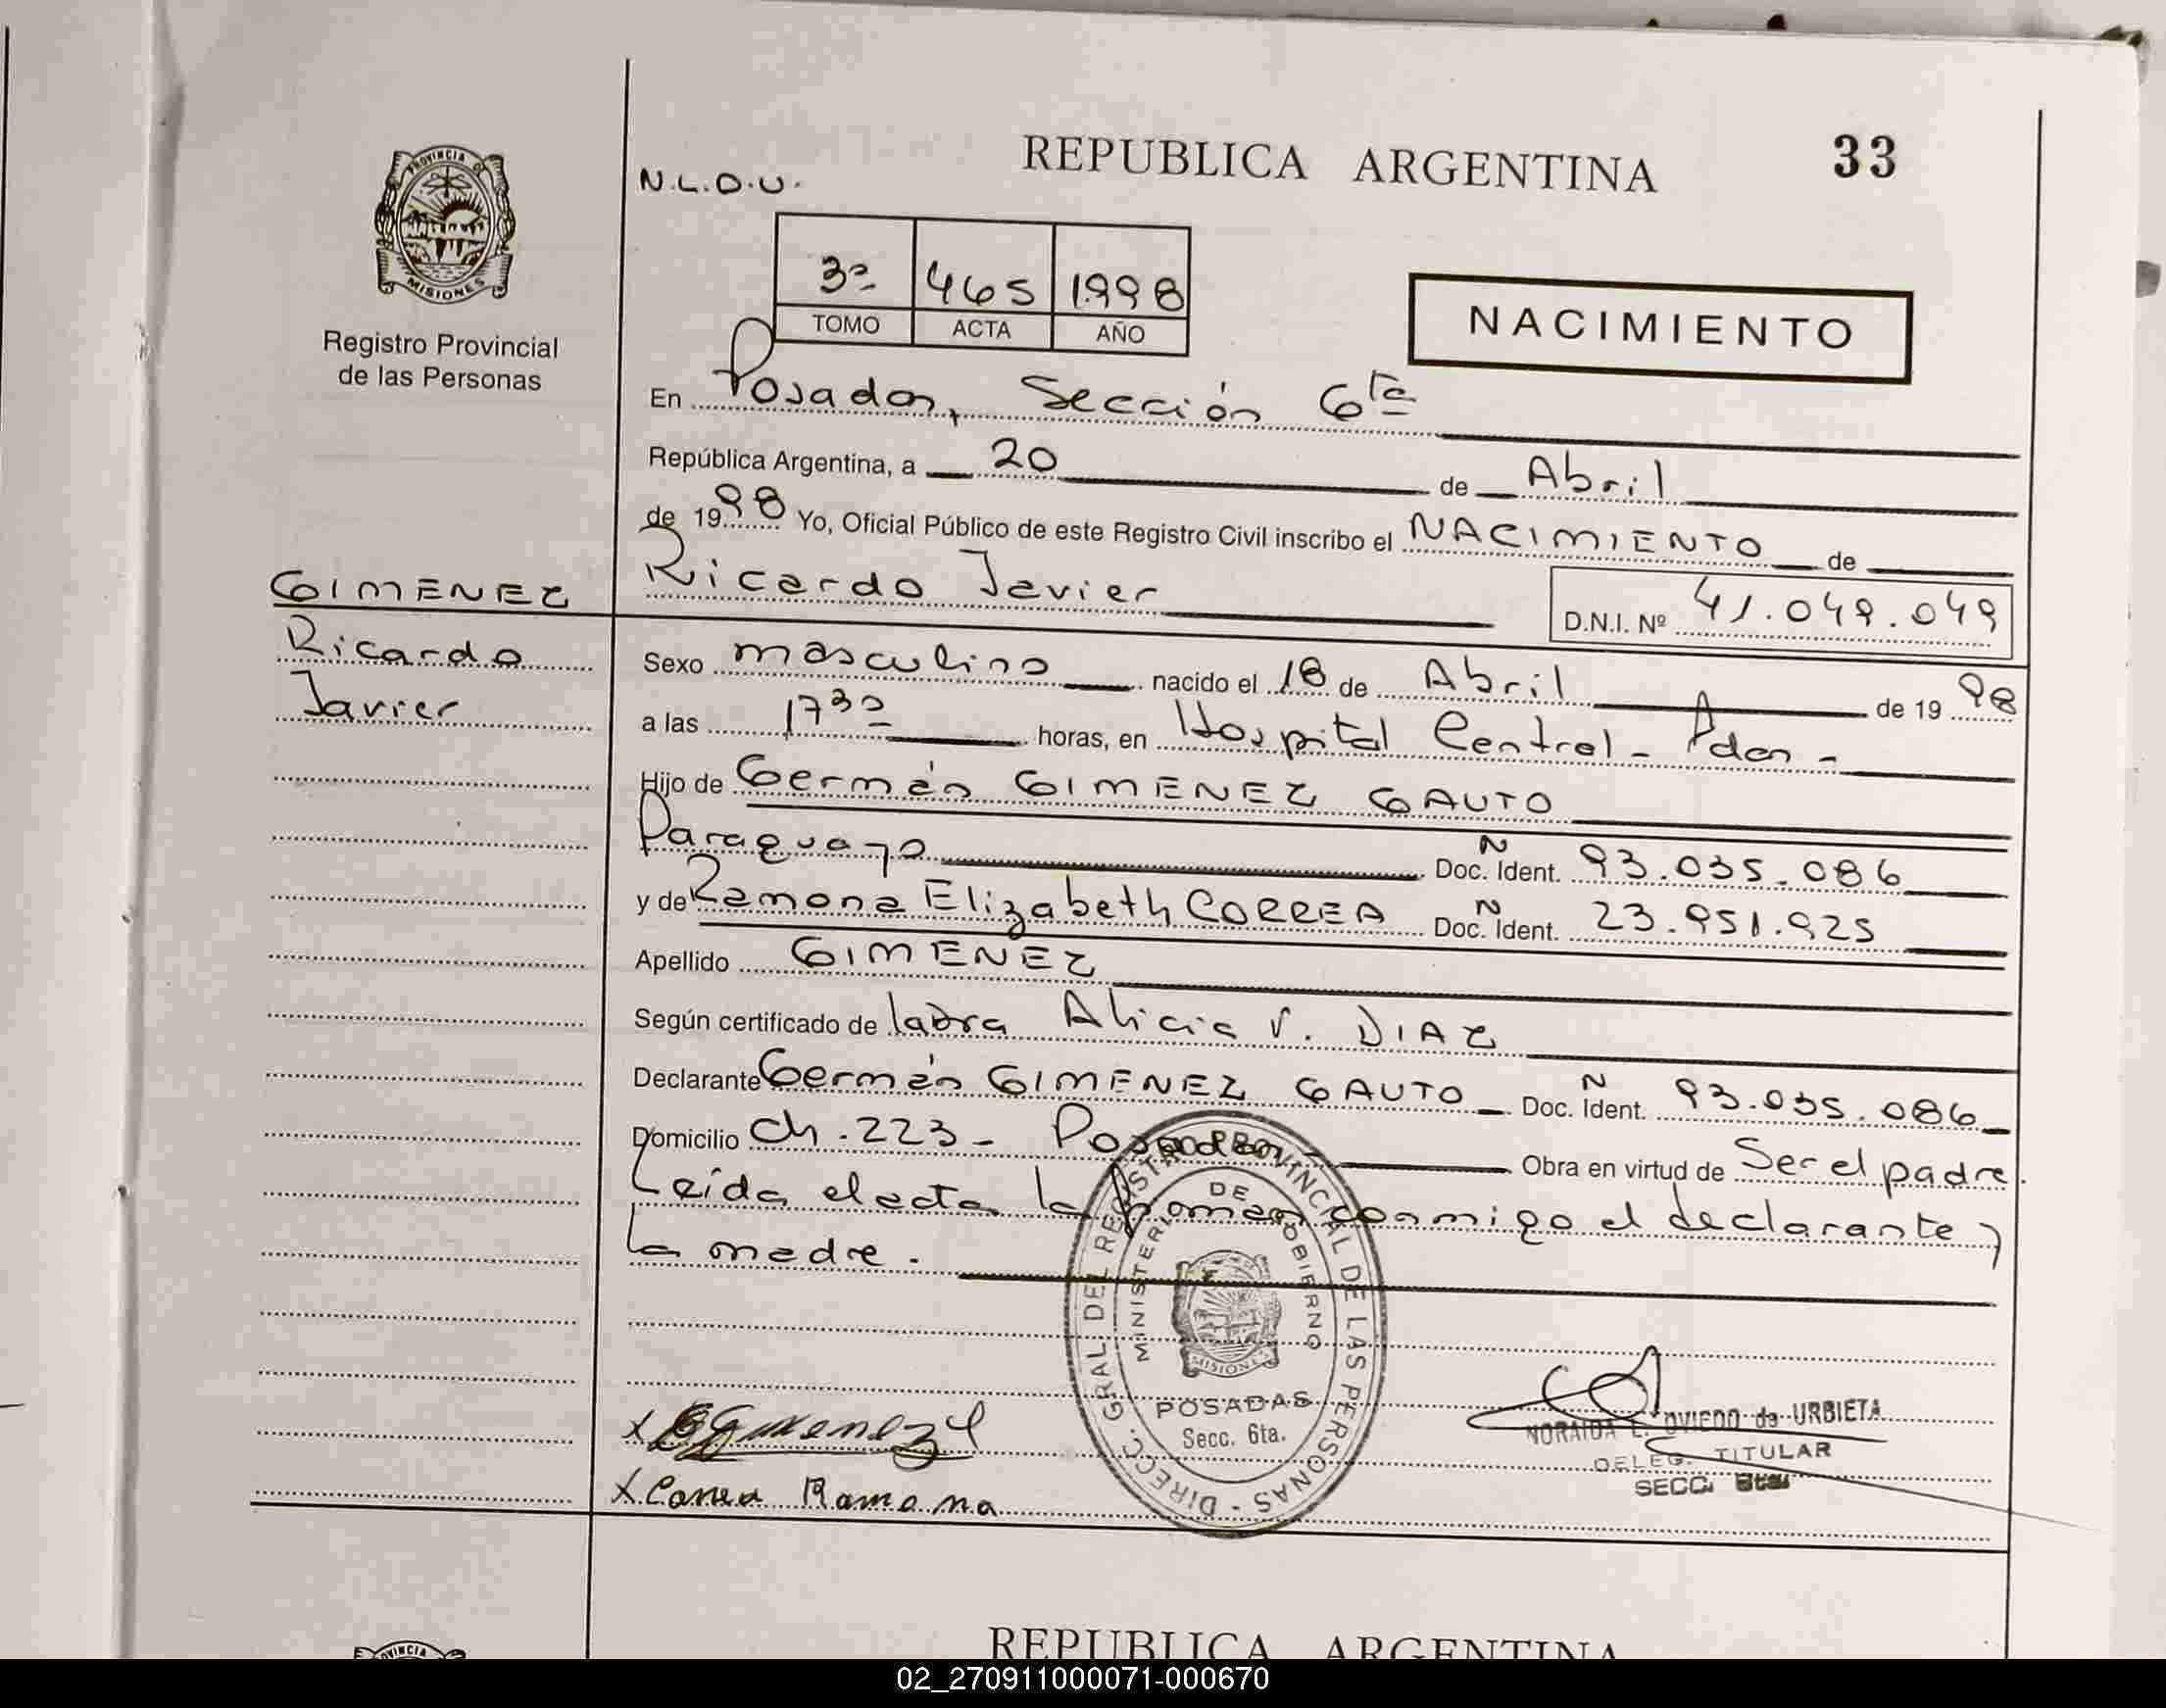 REPUBLICA ARGENTINA 33
N.L.D.U.
PROVINCIA DE
MISIONES
Registro Provincial
de las Personas
3º 465 1998
TOMO ACTA AÑO
NACIMIENTO
En Posadas, Sección 6ta
República Argentina, a 20 de Abril
de 1998 Yo, Oficial Público de este Registro Civil inscribo el NACIMIENTO de
Ricardo Javier D.N.I. Nº 41.049.049
GIMENEZ
Ricardo
Javier
Sexo masculino nacido el 18 de Abril de 1998
a las 17³⁰ horas, en Hospital Central - Pdas -
Hijo de Germán GIMENEZ GAUTO
Paraguayo Doc. Ñ Ident. 93.035.086
y de Ramona Elizabeth CORREA Doc. Ñ Ident. 23.951.925
Apellido GIMENEZ
Según certificado de la Dra Alicia V. DIAZ
Declarante Germán GIMENEZ GAUTO Doc. Ñ Ident. 93.035.086
Domicilio Ch. 223 - Posadas - Obra en virtud de Ser el padre.
Leída el acta la firman conmigo el declarante y
la madre.
DIRECC. GRAL. DEL REGISTRO PROVINCIAL DE LAS PERSONAS -
MINISTERIO DE GOBIERNO
MISIONES
POSADAS
Secc. 6ta.
X Gimenez
X Correa Ramona
NORAIDA L. OVIEDO de URBIETA
DELEG. TITULAR
SECC. 6ta.
PROVINCIA
REPUBLICA ARGENTINA
02_270911000071-000670